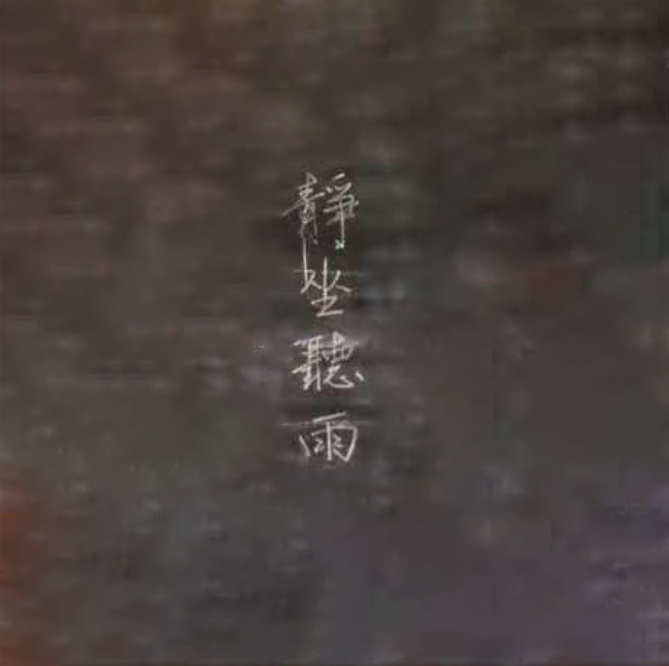 靜坐聽雨